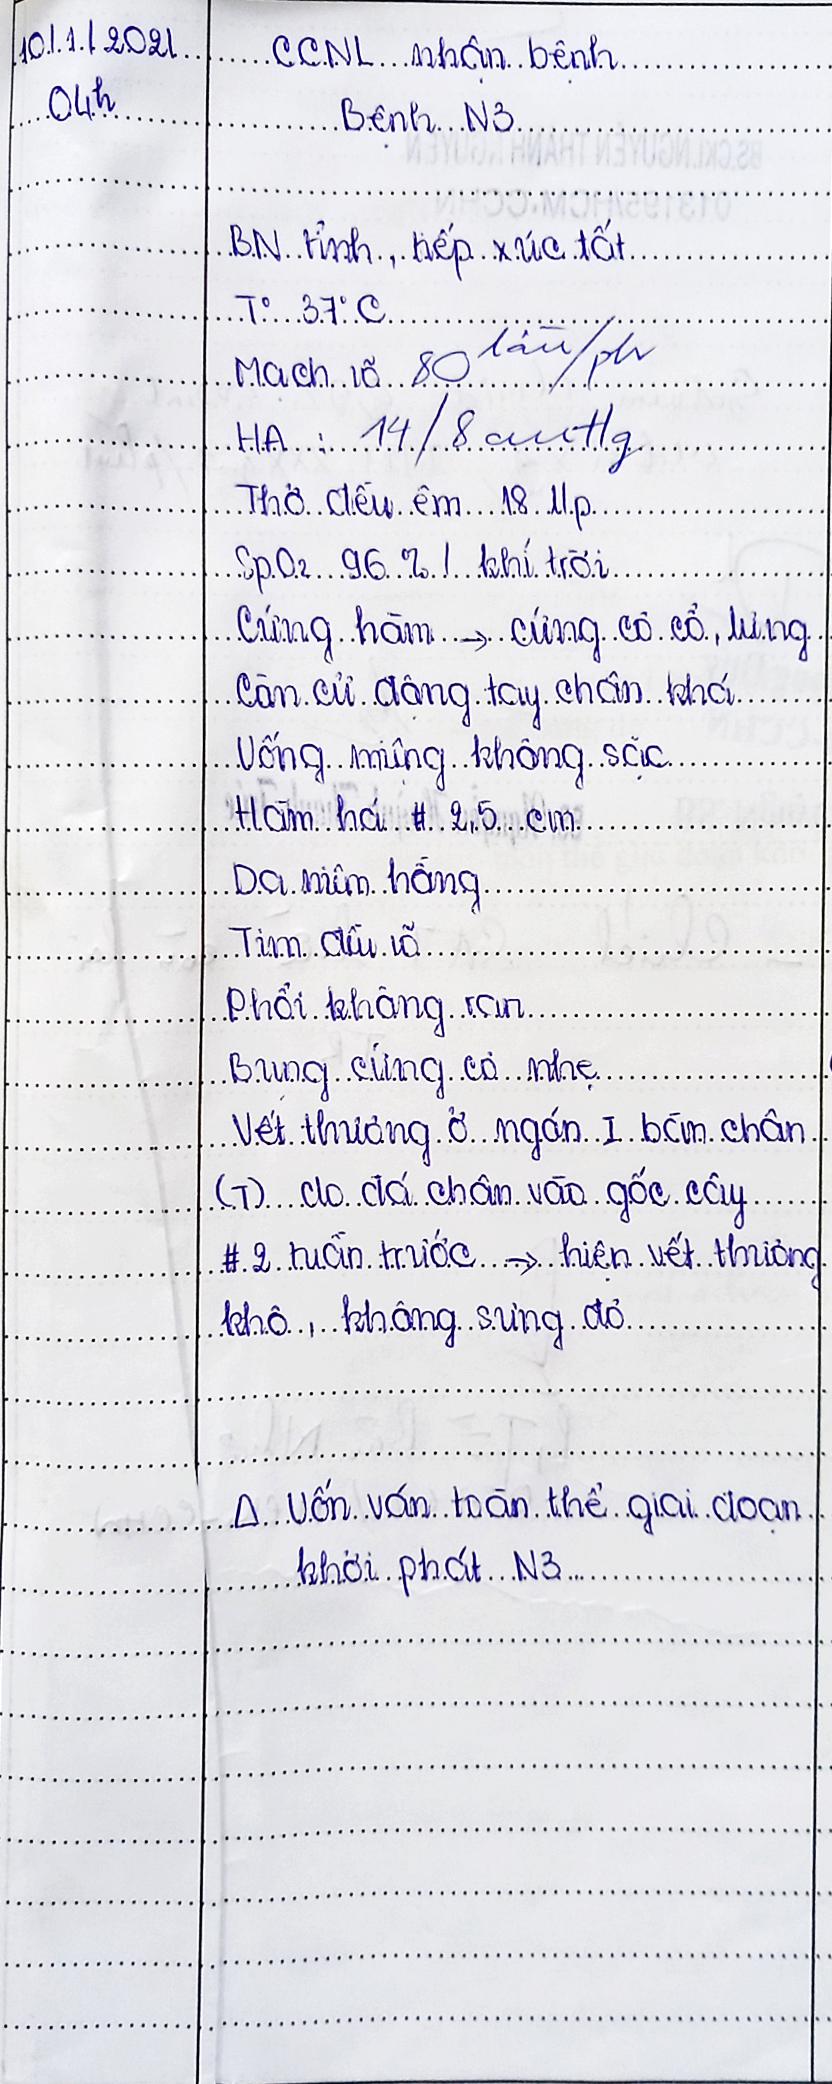 10/1/2021 CCNL nhận bệnh
04h Bệnh N3
BN tỉnh, tiếp xúc tốt
T° 37°C
Mạch rõ 80 lần/ph
HA : 14/8 cmHg
Thở đều êm 18 l/p
SpO2 96 % / khí trời
Cứng hàm → cứng cơ cổ, lưng
Còn cử động tay chân khá
Uống miếng không sặc
Hàm há # 2,5 cm
Da niêm hồng
Tim đều rõ
Phổi không ran
Bụng cứng cơ nhẹ
Vết thương ở ngón I bàn chân
(T) do đá chân vào gốc cây
# 2 tuần trước → hiện vết thương
khô, không sưng đỏ
Δ Uốn ván toàn thể giai đoạn
khởi phát N3